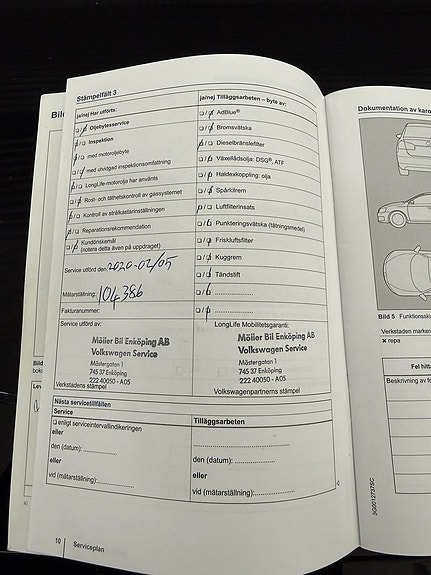 Stämpelfält 3
ja/nej Har utförts:
ja/nej Tilläggsarbeten – byte av:
Oljebytesservice
AdBlue®
Inspektion
Bromsvätska
med motoroljebyte
Dieselbränslefilter
med utvidgad inspektionsomfattning
Växellådsolja: DSG®, ATF
LongLife-motorolja har använts
Haldexkoppling: olja
Rost- och täthetskontroll av gassystemet
Spårkilrem
Kontroll av strålkastarinställningen
Luftfilterinsats
Reparationsrekommendation
Punkteringsvätska (tätningsmedel)
Kundönskemål
(notera detta även på uppdraget)
Friskluftsfilter
Kuggrem
Service utförd den: 2020-02/05
Tändstift
Mätarställning: 104386
Fakturanummer:
Service utförd av:
LongLife Mobilitetsgaranti:
Möller Bil Enköping AB
Volkswagen Service
Mästergatan 1
745 37 Enköping
222 40050 - A05
Verkstadens stämpel
Möller Bil Enköping AB
Volkswagen Service
Mästergatan 1
745 37 Enköping
222 40050 - A05
Volkswagenpartnerns stämpel
Nästa servicetillfällen
Service
Tilläggsarbeten
enligt serviceintervallindikeringen
eller
den (datum):
den (datum):
eller
eller
vid (mätarställning):
vid (mätarställning):
10 Serviceplan
Dokumentation av karo
Bild 5 Funktionsski
Verkstaden marker
× repa
Fel hitta
Beskrivning av fe
3G0012737SC
Bild
Bild
boks